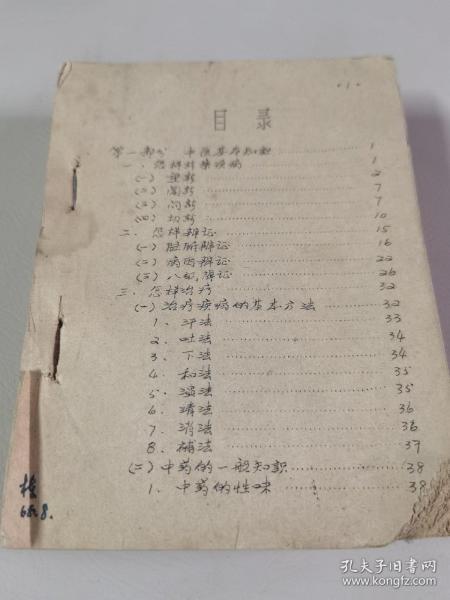 ·1·
目录
第一部分 中医基本知识 1
一、怎样诊察疾病 1
(一)望诊 2
(二)闻诊 7
(三)问诊 7
(四)切诊 10
二、怎样辨证 15
(一)脏腑辨证 16
(二)病因辨证 22
(三)八纲辨证 26
三、怎样治疗 32
(一)治疗疾病的基本方法 32
1、汗法 33
2、吐法 34
3、下法 34
4、和法 35
5、温法 35
6、清法 36
7、消法 36
8、补法 37
(二)中药的一般知识 38
1、中药的性味 38
68.8.
孔夫子旧书网
www.kongfz.com